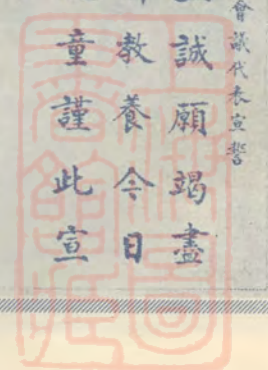 會議代表宣誓
誠願竭盡
教養今日
童謹此宣